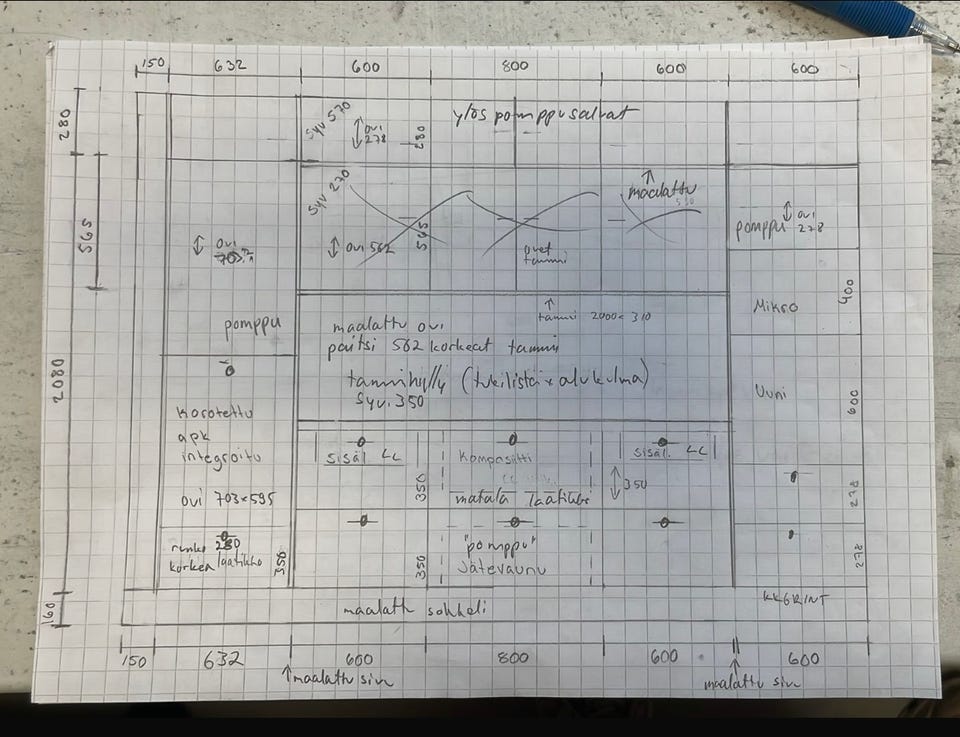 150 632 600 800 600 600
280
565
2080
160
syv 570
ovi
278
280
ylös pomppusalvat
syv 270
ovi 562
565
ovet
tammi
maalattu
pomppu ovi
278
ovi
pomppu
tammi 2000x310
400
Mikro
maalattu ovi
paitsi 562 korkeat tammi
tammihylly (tukilista x alukulma)
syv. 350
Uuni
600
korotettu
apk
integroitu
ovi 703x595
sisäl. LL
350
komposiitti
matala laatikko
sisäl. LL
350
278
runko 280
korkea laatikko
350
350
"pomppu"
Jätevaunu
278
maalattu sokkeli
150 632 600 800 600 600
maalattu sivu
maalattu sivu